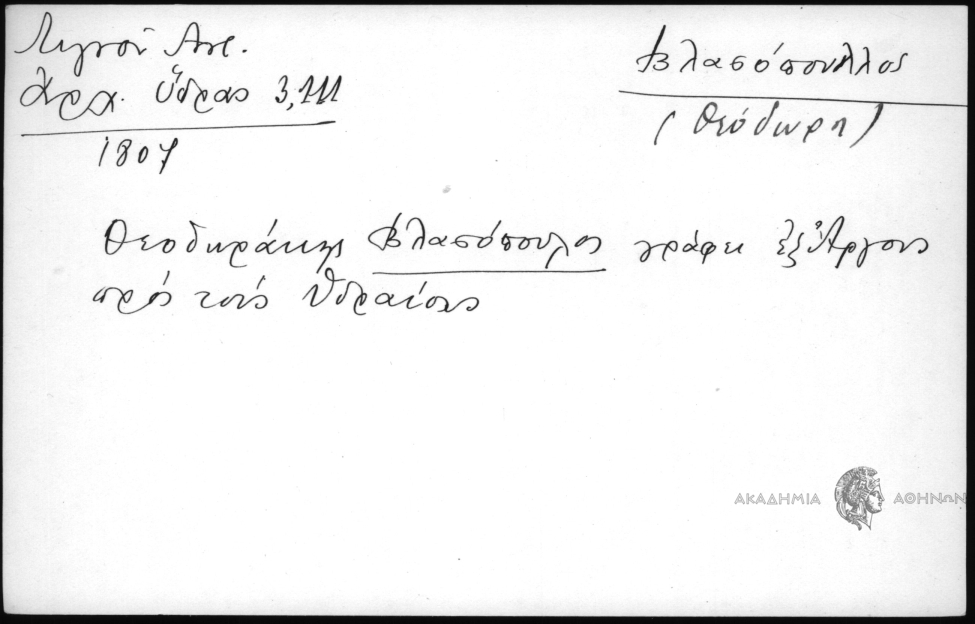 Λιγνοῦ Ἀντ.
Ἀρχ. Ὕδρας 3,111
1807
Βλασόπουλλος
(Θεόδωρη)
Θεοδωράκης Βλασόπουλος γράφει ἐξ Ἄργους
πρός τούς Ὑδραίους
ΑΚΑΔΗΜΙΑ ΑΘΗΝΩΝ